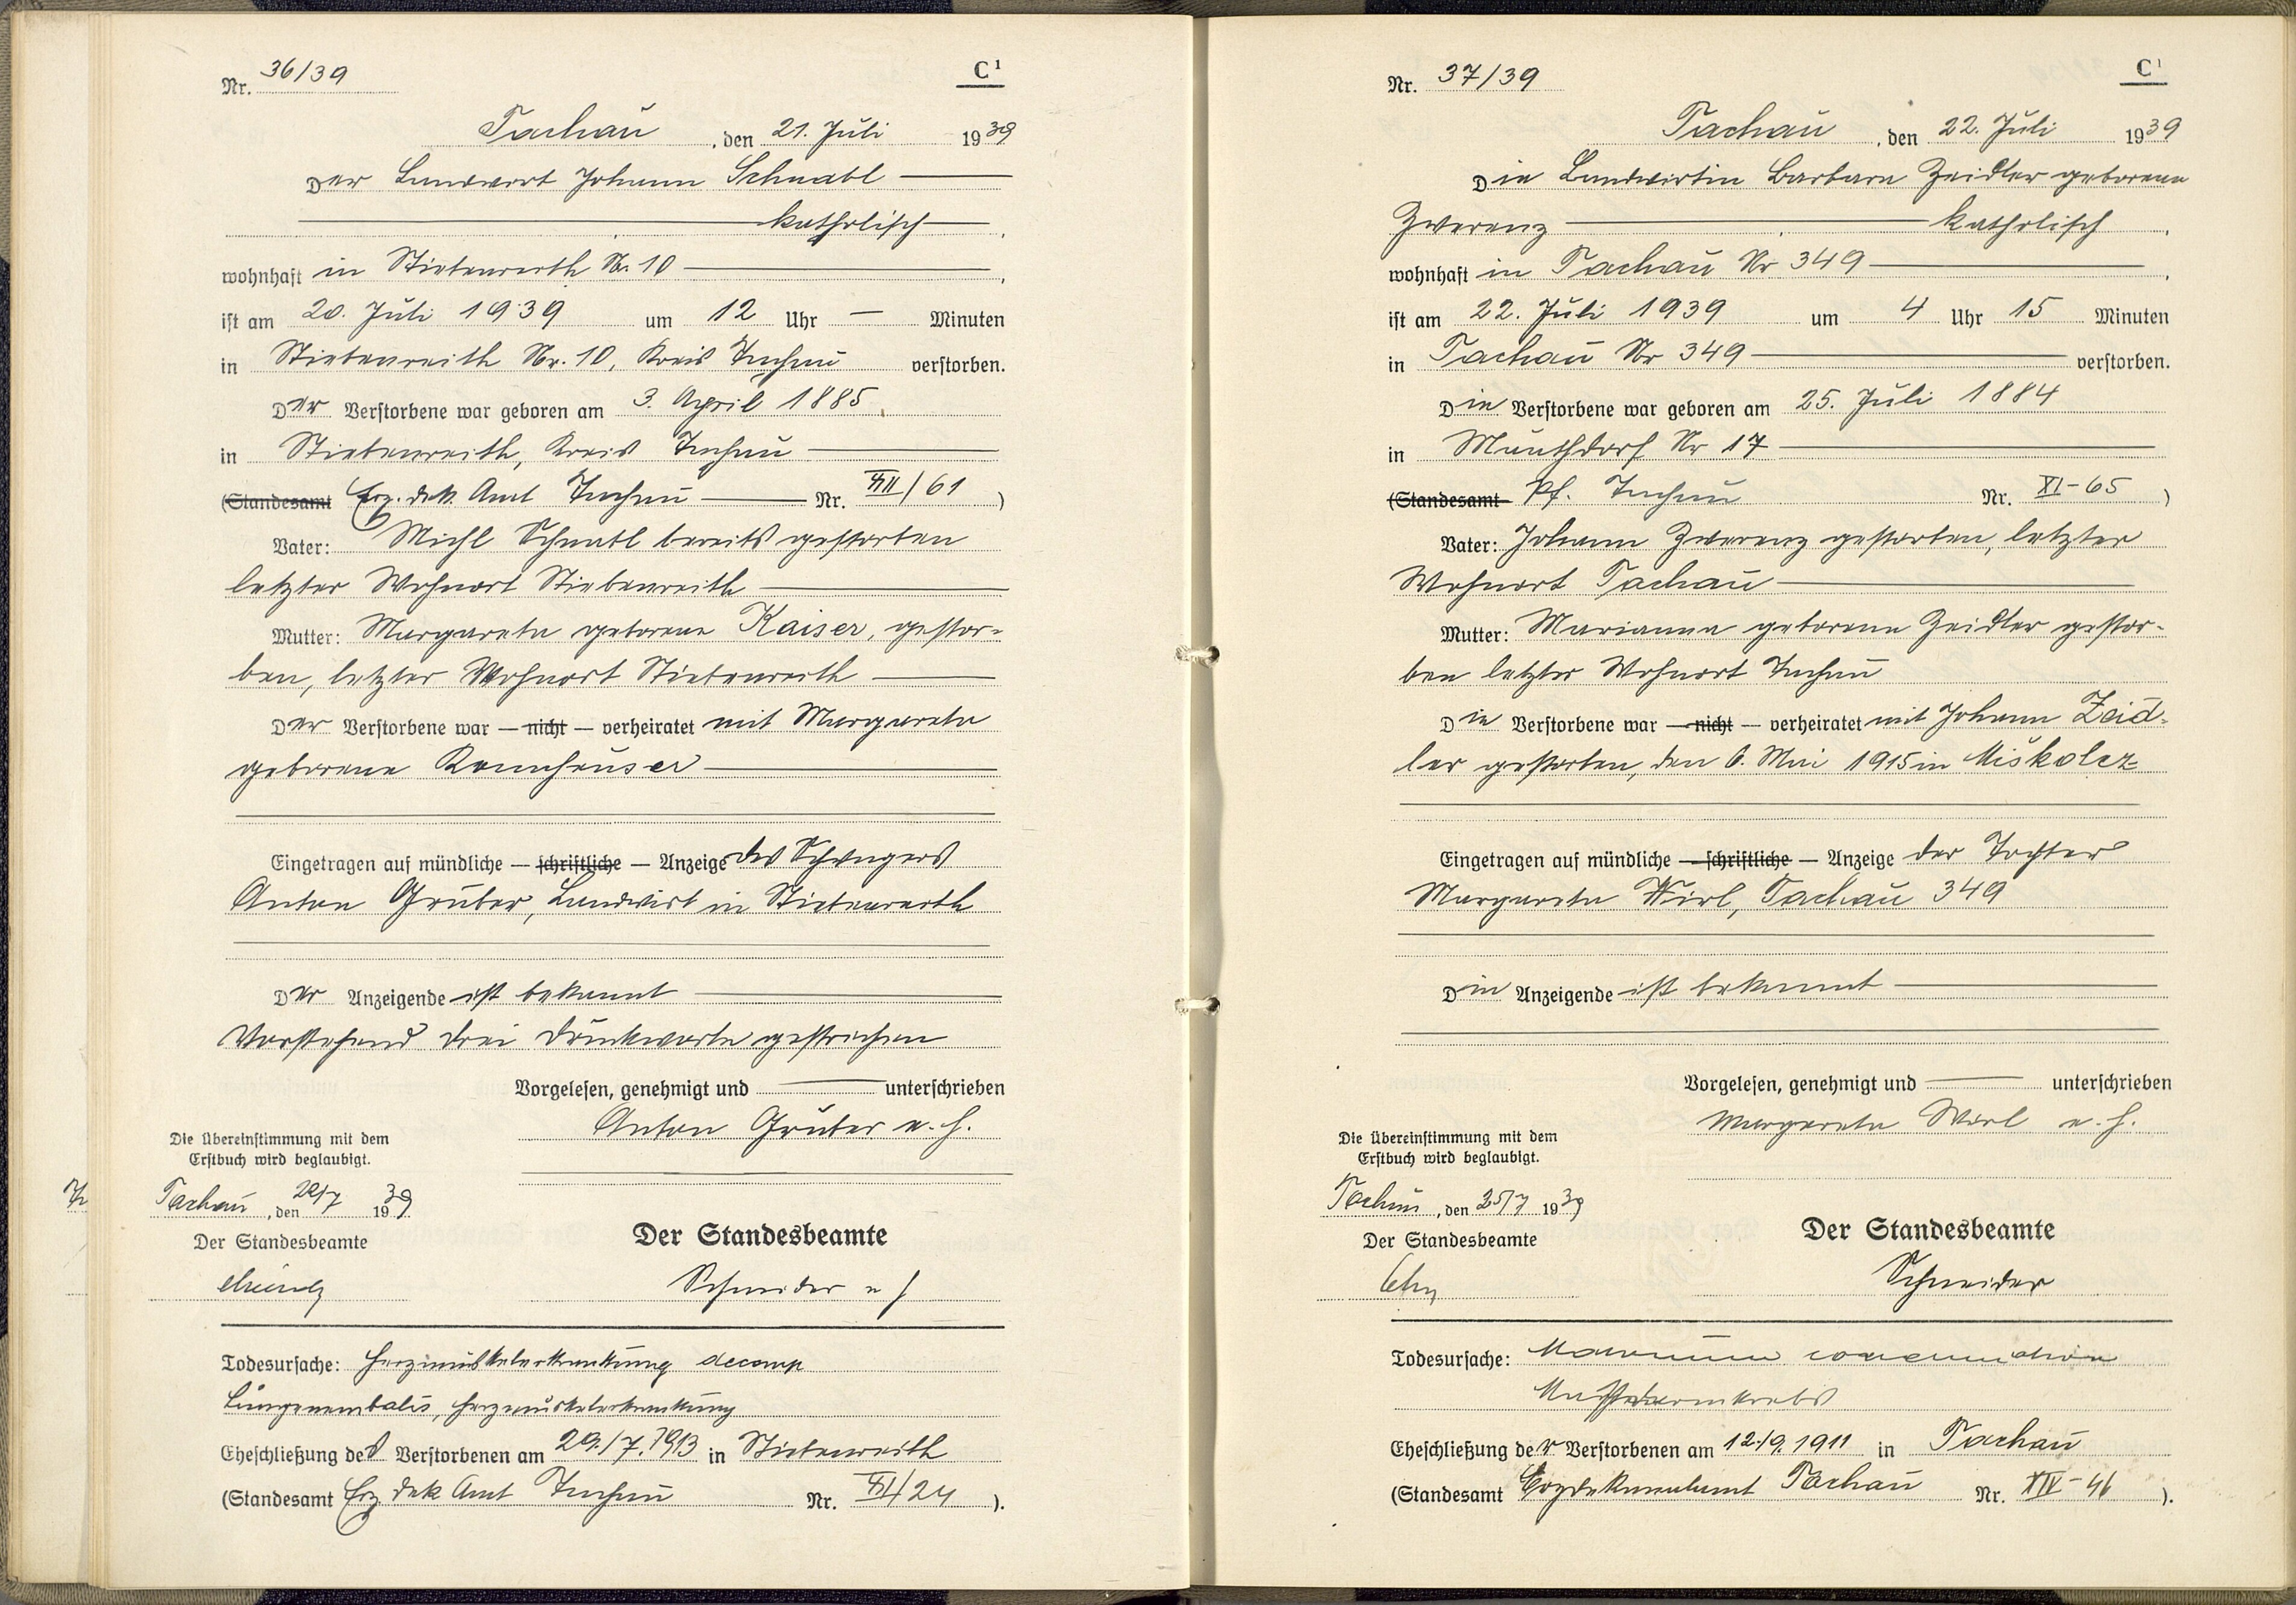 Nr. 36/39
C¹
Tachau, den 21. Juli 1939
Der Landwirt Johann Schnabl
katholisch
wohnhaft in Stiebenreith Nr. 10
ist am 20. Juli 1939 um 12 Uhr — Minuten
in Stiebenreith Nr. 10, Kreis Tachau verstorben.
Der Verstorbene war geboren am 3. April 1885
in Stiebenreith, Kreis Tachau
(Standesamt Erz. dek. Amt Tachau Nr. /61)
Vater: Michl Schnabl bereits gestorben
letzter Wohnort Stiebenreith
Mutter: Margareta geborene Kaiser, gestor-
ben, letzter Wohnort Stiebenreith
Der Verstorbene war — nicht — verheiratet mit Margareta
geborene Rannhäuser
Eingetragen auf mündliche — schriftliche — Anzeige des Schwagers
Anton Gruber, Landwirt in Stiebenreith
Der Anzeigende ist bekannt
Vorstehend drei Druckworte gestrichen
Vorgelesen, genehmigt und — unterschrieben
Anton Gruber e. h.
Die Übereinstimmung mit dem
Erstbuch wird beglaubigt.
Tachau, den 1939
Der Standesbeamte
Der Standesbeamte
Schneider
Todesursache: Herzmuskelerkrankung decomp
Lungenembolis, Herzmuskelerkrankung
Eheschließung des Verstorbenen am 29./7. 1913 in Stiebenreith
(Standesamt Erz. dek. Amt Tachau Nr. /24).
Nr. 37/39
C¹
Tachau, den 22. Juli 1939
Die Landwirtin Barbara Zeidler geborene
Zwerenz katholisch
wohnhaft in Tachau Nr 349
ist am 22. Juli 1939 um 4 Uhr 15 Minuten
in Tachau Nr 349 verstorben.
Die Verstorbene war geboren am 25. Juli 1884
in Mauthdorf Nr 17
(Standesamt Pf. Tachau Nr. XI-65)
Vater: Johann Zwerenz gestorben, letzter
Wohnort Tachau
Mutter: Marianna geborene Zeidler gestor-
ben letzter Wohnort Tachau
Die Verstorbene war — nicht — verheiratet mit Johann Zeid-
ler gestorben, den 6. Mai 1915 in Miškolcz
Eingetragen auf mündliche — schriftliche — Anzeige der Tochter
Margareta Wirl, Tachau 349
Die Anzeigende ist bekannt
Vorgelesen, genehmigt und — unterschrieben
Margareta Wirl e. h.
Die Übereinstimmung mit dem
Erstbuch wird beglaubigt.
Tachau, den 25/7 1939
Der Standesbeamte
Der Standesbeamte
Schneider
Todesursache:
Mastdarmkrebs
Eheschließung der Verstorbenen am 12./9. 1911 in Tachau
(Standesamt Erzdekanalamt Tachau Nr. XIV-46).